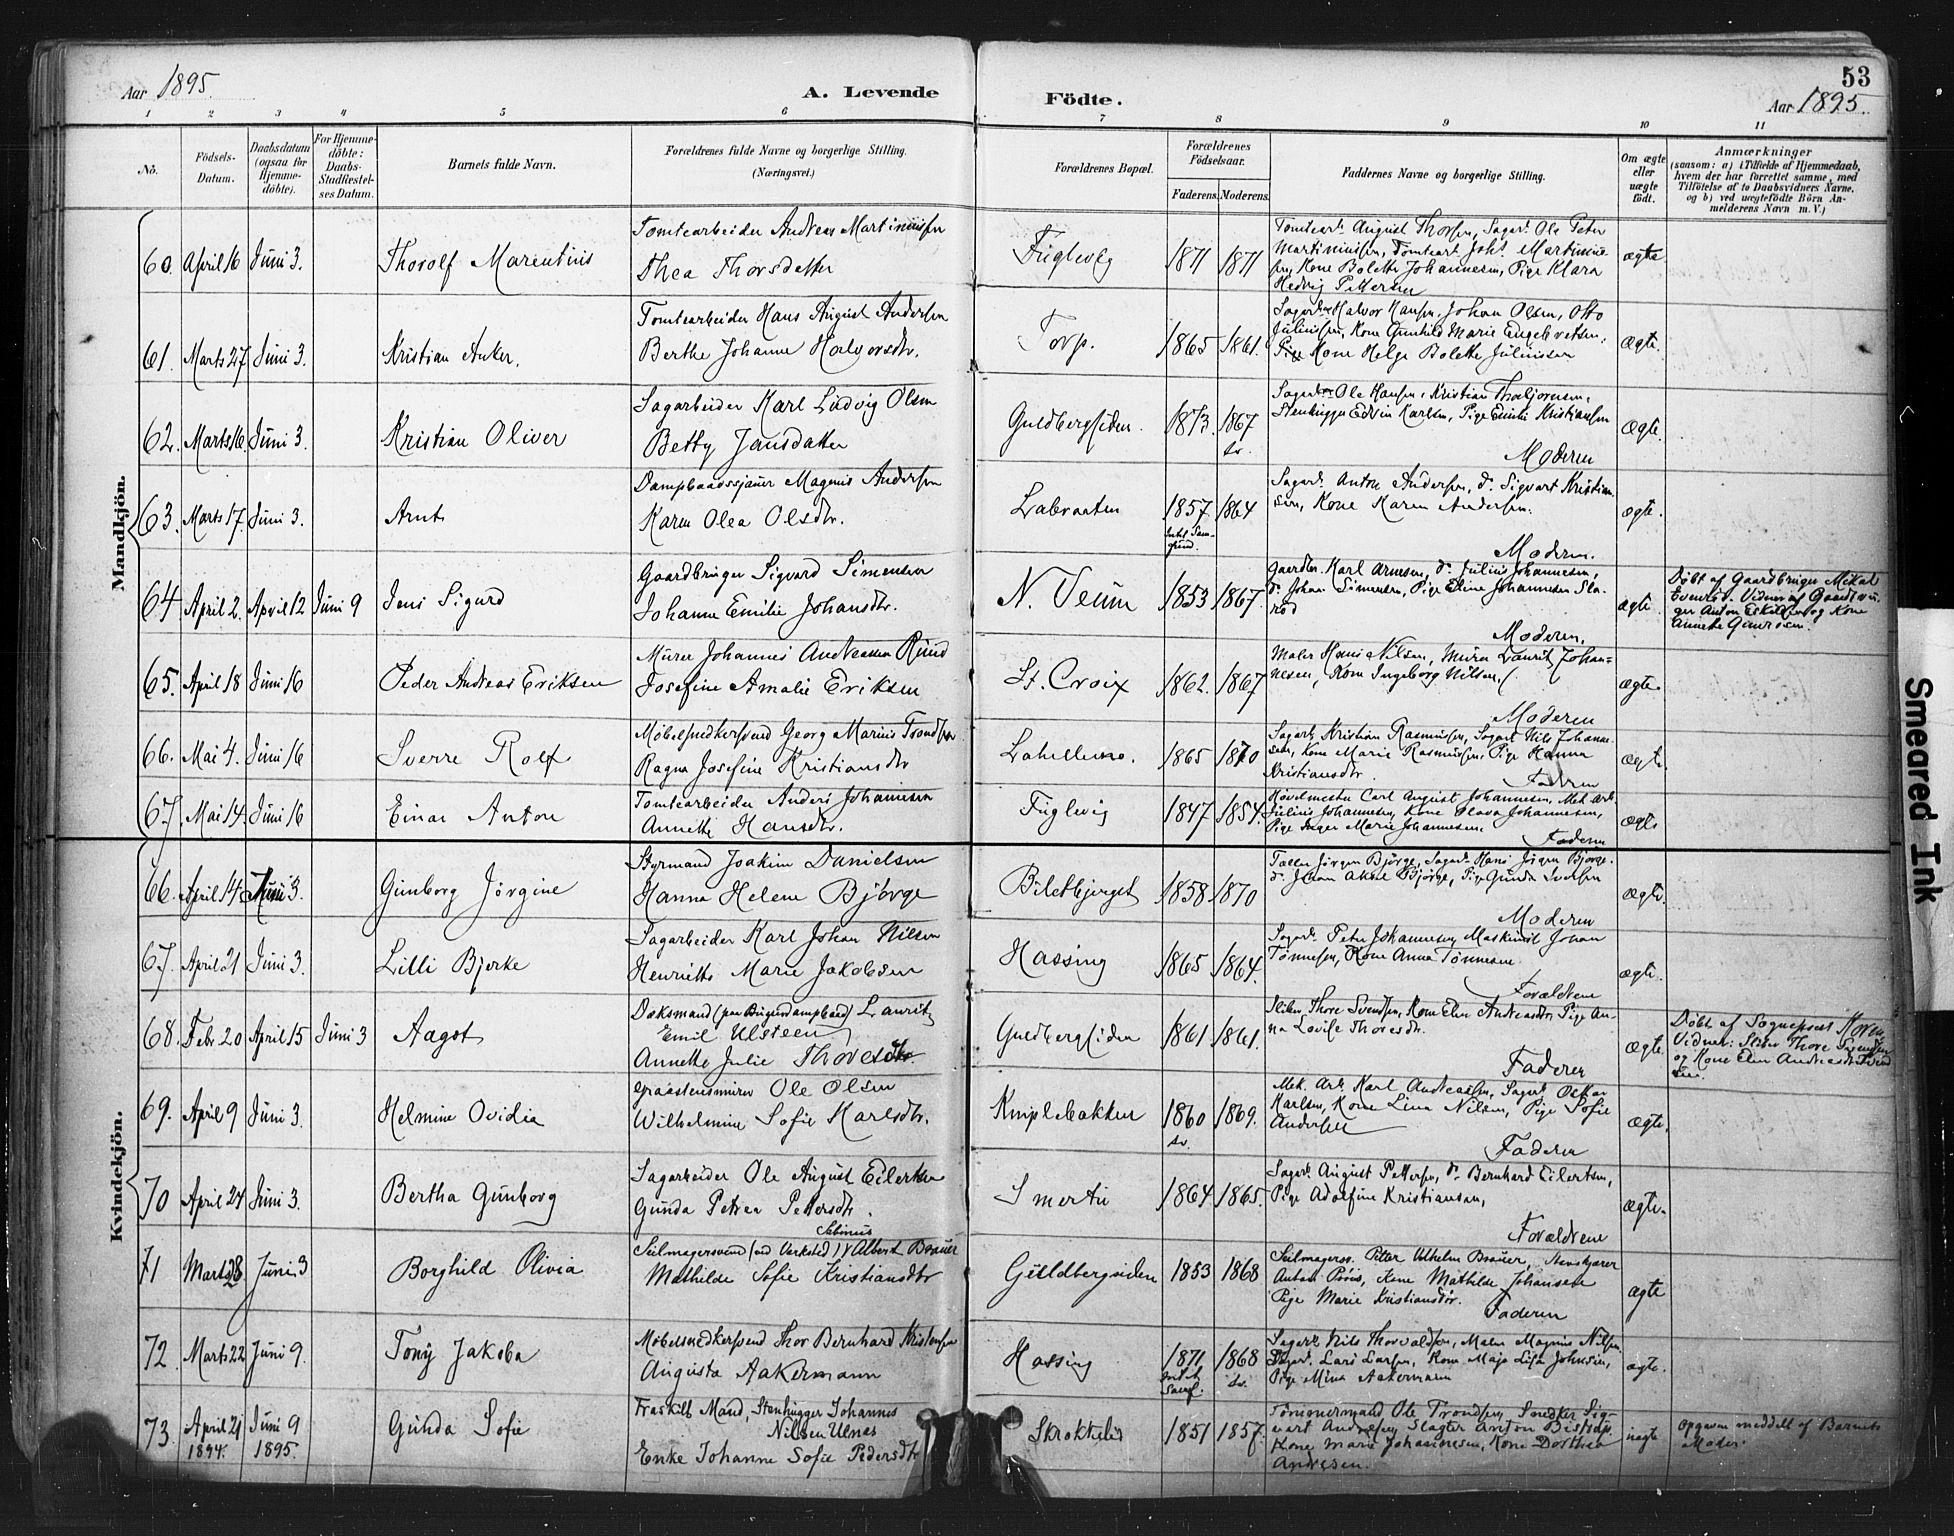 Aar 1895.
A. Levende Födte.
53
Aar 1895.
1 2 3 4 5 6 7 8 9 10 11
No.
Födsels-Datum.
Daabsdatum (ogsaa for Hjemme-döbte).
For Hjemme-döbte: Daabs-Stadfæstel-ses Datum.
Barnets fulde Navn.
Forældrenes fulde Navne og borgerlige Stilling. (Næringsvei.)
Forældrenes Bopæl.
Forældrenes Födselsaar.
Faderens. Moderens.
Faddernes Navne og borgerlige Stilling.
Om ægte eller uægte födt.
Anmærkninger
(saasom: a) i Tilfælde af Hjemmedaab,
hvem der har forrettet samme, med
Tilföielse af to Daabsvidners Navne,
og b) ved uægtefödte Börn An-
melderens Navn m. V.)
Mandkjön.
60. April 16 Juni 3. Thorolf Marentius
Tomtearbeider Andreas Martiniusen
Thea Thorsdatter
Fuglevig 1871 1871
Tomtearb. August Thorsen, Sagarb. Ole Peter
Martiniussen, Tomtearb. Johs. Martinius
sen, Kone Bolette Johannesen, Pige Klara
Hedvig Pettersen
ægte
61. Marts 27 Juni 3. Kristian Anker.
Tomtearbeider Hans August Andersen
Berthe Johanne Halvorsdtr.
Torp. 1865 1861.
Sagarb. Halvor Hansen, Johan Olsen, Otto
Juliussen, Kone Gunhild Marie Engebretsen,
Kone Helge Bolette Juliussen
ægte.
62. Marts 16. Juni 3. Kristian Oliver
Sagarbeider Karl Ludvig Olsen
Betty Jansdatter
Guldbergsiden. 1873. 1867 sv.
Sagarb. Ole Hansen, Kristian Thorbjørnsen,
Stenhugger Edvin Karlsen, Pige Emilie Kristiansen
Moderen
ægte.
63. Marts 17. Juni 3. Arnt
Dampbaadssjauer Magnus Andersen
Karen Olea Olsdtr.
Labraaten 1857 1864
Sagarb. Anton Andersen, do. Sigvart Kristian
sen, Kone Karen Andersen.
Moderen.
ægte.
64. April 2. April 12 Juni 9 Jens Sigurd
Gaardbruger Sigvard Simensen
Johanne Emilie Johansdtr.
N. Veum 1853 1867.
Gaardbr. Karl Arnesen, do. Julius Johannesen,
do. Johan Simensen, Pige Eline Johannesen Sla-
rød
Moderen.
ægte
Døbt af Gaardbruger Mikal
Evensrød. Vidner af Gaardbru-
ger Anton Eskilsen og Kone
Annette Gundersen.
65. April 18 Juni 16 Peder Andreas Eriksen
Murer Johannes Andreassen Ruud
Josefine Amalie Eriksen
St. Croix 1862. 1867
Maler Hans Nilsen, Murer Laurits Johan-
nesen, Kone Ingeborg Nilsen.
Moderen
ægte.
66. Mai 4. Juni 16 Sverre Rolf
Møbelsnedkersvend Georg Marius Trondsen
Ragna Josefine Kristiansdtr
Lahellemo. 1865 1870
Sagarb. Kristian Rasmussen, Sagarb. Nils Johanne
sen, Kone Marie Rasmussen, Pige Hanna
Kristiansdtr.
Faderen
ægte.
67. Mai 14. Juni 16 Einar Anton
Tomtearbeider Anders Johannesen
Annette Hansdtr.
Fuglevig 1847 1854.
Høvelmester Carl August Johannesen, Mek. Arb.
Julius Johannesen, Kone Olava Johannesen,
Pige Inger Marie Johannesen.
Faderen
ægte
Kvindekjön.
66. April 14. Juni 3. Gunborg Jørgine
Styrmand Joakim Danielsen
Hanna Helene Bjørge
Biletbjerget 1858 1870
Tæller Jørgen Bjørge, Sagarb. Hans Jørgen Bjørge.
do. Johan Aksel Bjørge, Pige Gunda Iversen
Moderen
ægte.
67. April 21 Juni 3. Lilli Bjerke
Sagarbeider Karl Johan Nilsen
Henriette Marie Jakobsen
Hassing 1865 1864.
Sagarb. Peter Johannesen, Maskinist Johan
Tønnesen, Kone Anna Tønnesen
Forældrene
ægte.
68. Febr 20 April 15 Juni 3 Aagot
Dæksmand (paa Bugserdampbaad) Laurits
Emil Ulsteen
Annette Julie Thoresdtr.
Guldbergsiden 1861 1861.
Sliber Thore Svendsen, Kone Elen Andreasdtr, Pige An-
na Lovise Thoresdtr.
Faderen
ægte.
Døbt af Sogneprest Horn.
Vidner: Sliber Thore Svendsen
og Kone Elen Andreasdtr Svend
sen.
69. April 9 Juni 3. Helmine Ovidia
Graastensmurer Ole Olsen
Wilhelmine Sofie Karlsdtr.
Kniplebakken 1860 sv. 1869.
Mek. Arb. Karl Andreassen, Sagarb. Oskar
Karlsen, Kone Lina Nilsen, Pige Sofie
Andersen
Faderen
ægte.
70 April 24 Juni 3. Bertha Gunborg
Sagarbeider Ole August Eilertsen
Gunda Petrea Pettersdtr.
Smertu 1864 1865.
Sagarb. August Pettersen, do. Bernhard Eilertsen,
Pige Adolfine Kristiansen,
Forældrene
ægte.
71 Marts 28. Juni 3 Borghild Olivia
Sabinus
Seilmagersvend (ved Verksted) Albert Brauer
Mathilde Sofie Kristiansdtr
Guldbergsiden 1853 1868
Seilmagersv. Petter Vilhelm Brauer, Stenskjærer
Anton Pøvis, Kone Mathilde Johansen
Pige Marie Kristiansdtr.
Faderen
ægte
72 Marts 22 Juni 9. Tony Jakoba
Møbelsnedkersvend Thor Bernhard Kristensen
Augusta Aakermann
Hassing 1871 1868 sv.
Sagarb. Nils Thorvaldsen, Maler Magnus Nilsen
Sagarb. Lars Larsen, Kone Maja Lisa Johnsen,
Pige Mina Aakermann
ægte.
73. April 21 1894. Juni 9 1895. Gunda Sofie
Fraskilt Mand, Stenhugger Johannes
Nilsen Ulnæs
Enke Johanne Sofie Pedersdtr
Skroktelid 1851 1857.
Tømmermand Ole Trondsen, Snedker Sig-
vart Andresen, Slagter Anton Bistrup
Kone Marie Johannesen, Kone Dorthea
Andresen.
uægte
Opgaven meddelt af Barnets
Moder.
Smeared Ink